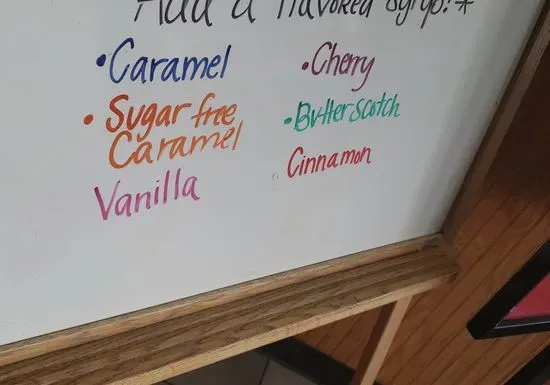 Add a flavored syrup! *
• Caramel
• Sugar free
Caramel
Vanilla
• Cherry
• Butterscotch
Cinnamon